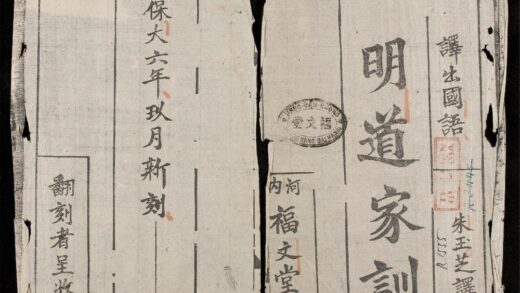 譯出國語
朱玉芝譯
明道家訓
福文堂
河内
福文堂
保大六年玖月新刻
翻刻者呈